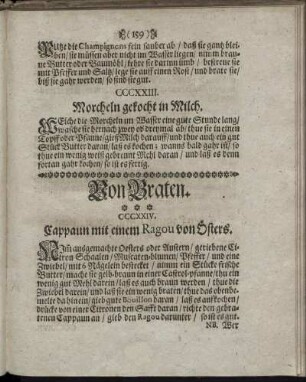 ( 159 )
Putze die Champignons fein sauber ab / daß sie gantz blei-
ben / sie müssen aber nicht im Wasser liegen / nim̃ in brau-
ne Butter oder Baumöhl / kehre sie darinn umb / bestreue sie
mit Pfeffer und Saltz / lege sie auff einen Rost / und brate sie /
biß sie gahr werden / so sind sie gut.
CCCXXIII.
Morcheln gekocht in Milch.
WEiche die Morcheln im Wasser eine gute Stunde lang /
wasche sie hernach zwey oder dreymal ab / thue sie in einen
Topff oder Pfanne / gieß Milch darauff / und thue auch ein gut
Stück Butter daran / laß es kochen ; wanns bald gahr ist / so
thue ein wenig weiß gebrennt Mehl daran / und laß es denn
fortan gahr kochen / so ist es fertig.
Von Braten.
* * *
CCCXXIV.
Cappaun mit einem Ragou von Osters.
NIm ausgemachte Osters oder Austern / geriebene Ci-
tronen Schaalen / Muscaten-blumen / Pfeffer / und eine
Zwiebel / mit 6 Nägelein bestecket / nimm ein Stück frische
Butter / mache sie gelb-braun in einer Castrol-pfanne / thu ein
wenig gut Mehl daran / laß es auch braun werden / thue die
Zwiebel darein / und laß sie ein wenig braten / thue das obenbe-
meldte dahinein / gieb gute Bouillon daran / laß es auffkochen /
drücke von einer Citronen den Safft daran / richte den gebra-
tenen Cappaun an / gieb den Ragou darunter / so ist es gut.
NB. Wer